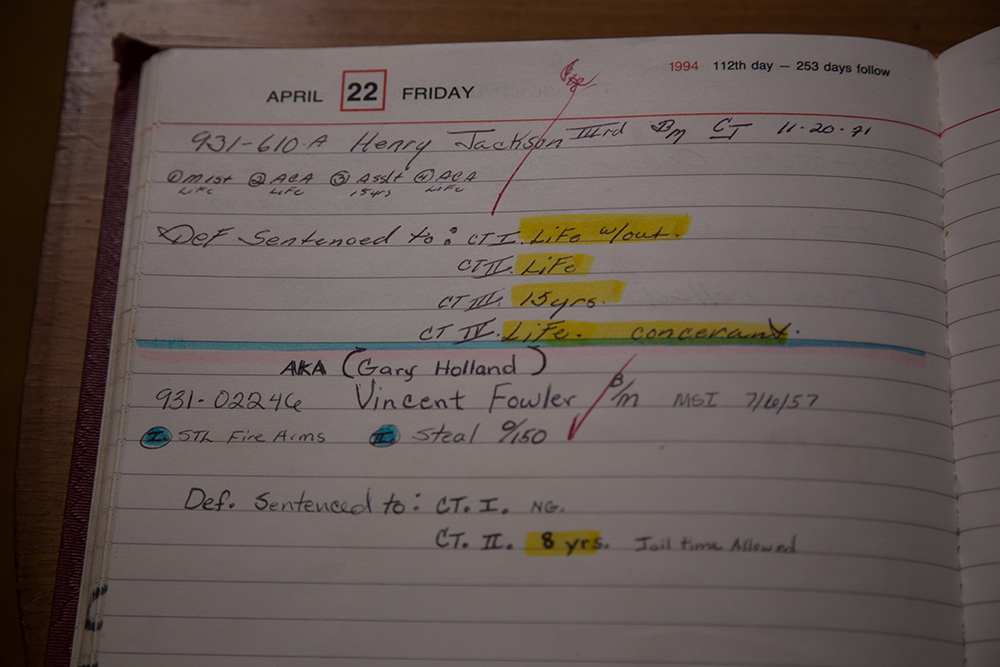 1994 112th day — 253 days follow
APRIL 22 FRIDAY
931-610-A Henry Jackson IIIrd B/M CT 11-20-71
① M1st ② ACA ③ Asslt ④ ACA
LiFe LiFe 15yrs LiFe
Def Sentenced to: CT I. LiFe w/out.
CT II. LiFe
CT III. 15 yrs.
CT IV. LiFe. concerant.
AKA (Gary Holland)
931-02246 Vincent Fowler B/M MSI 7/6/57
I. STL Fire Arms II. Steal O/150
Def. Sentenced to: CT. I. NG.
CT. II. 8 yrs. Jail time Allowed